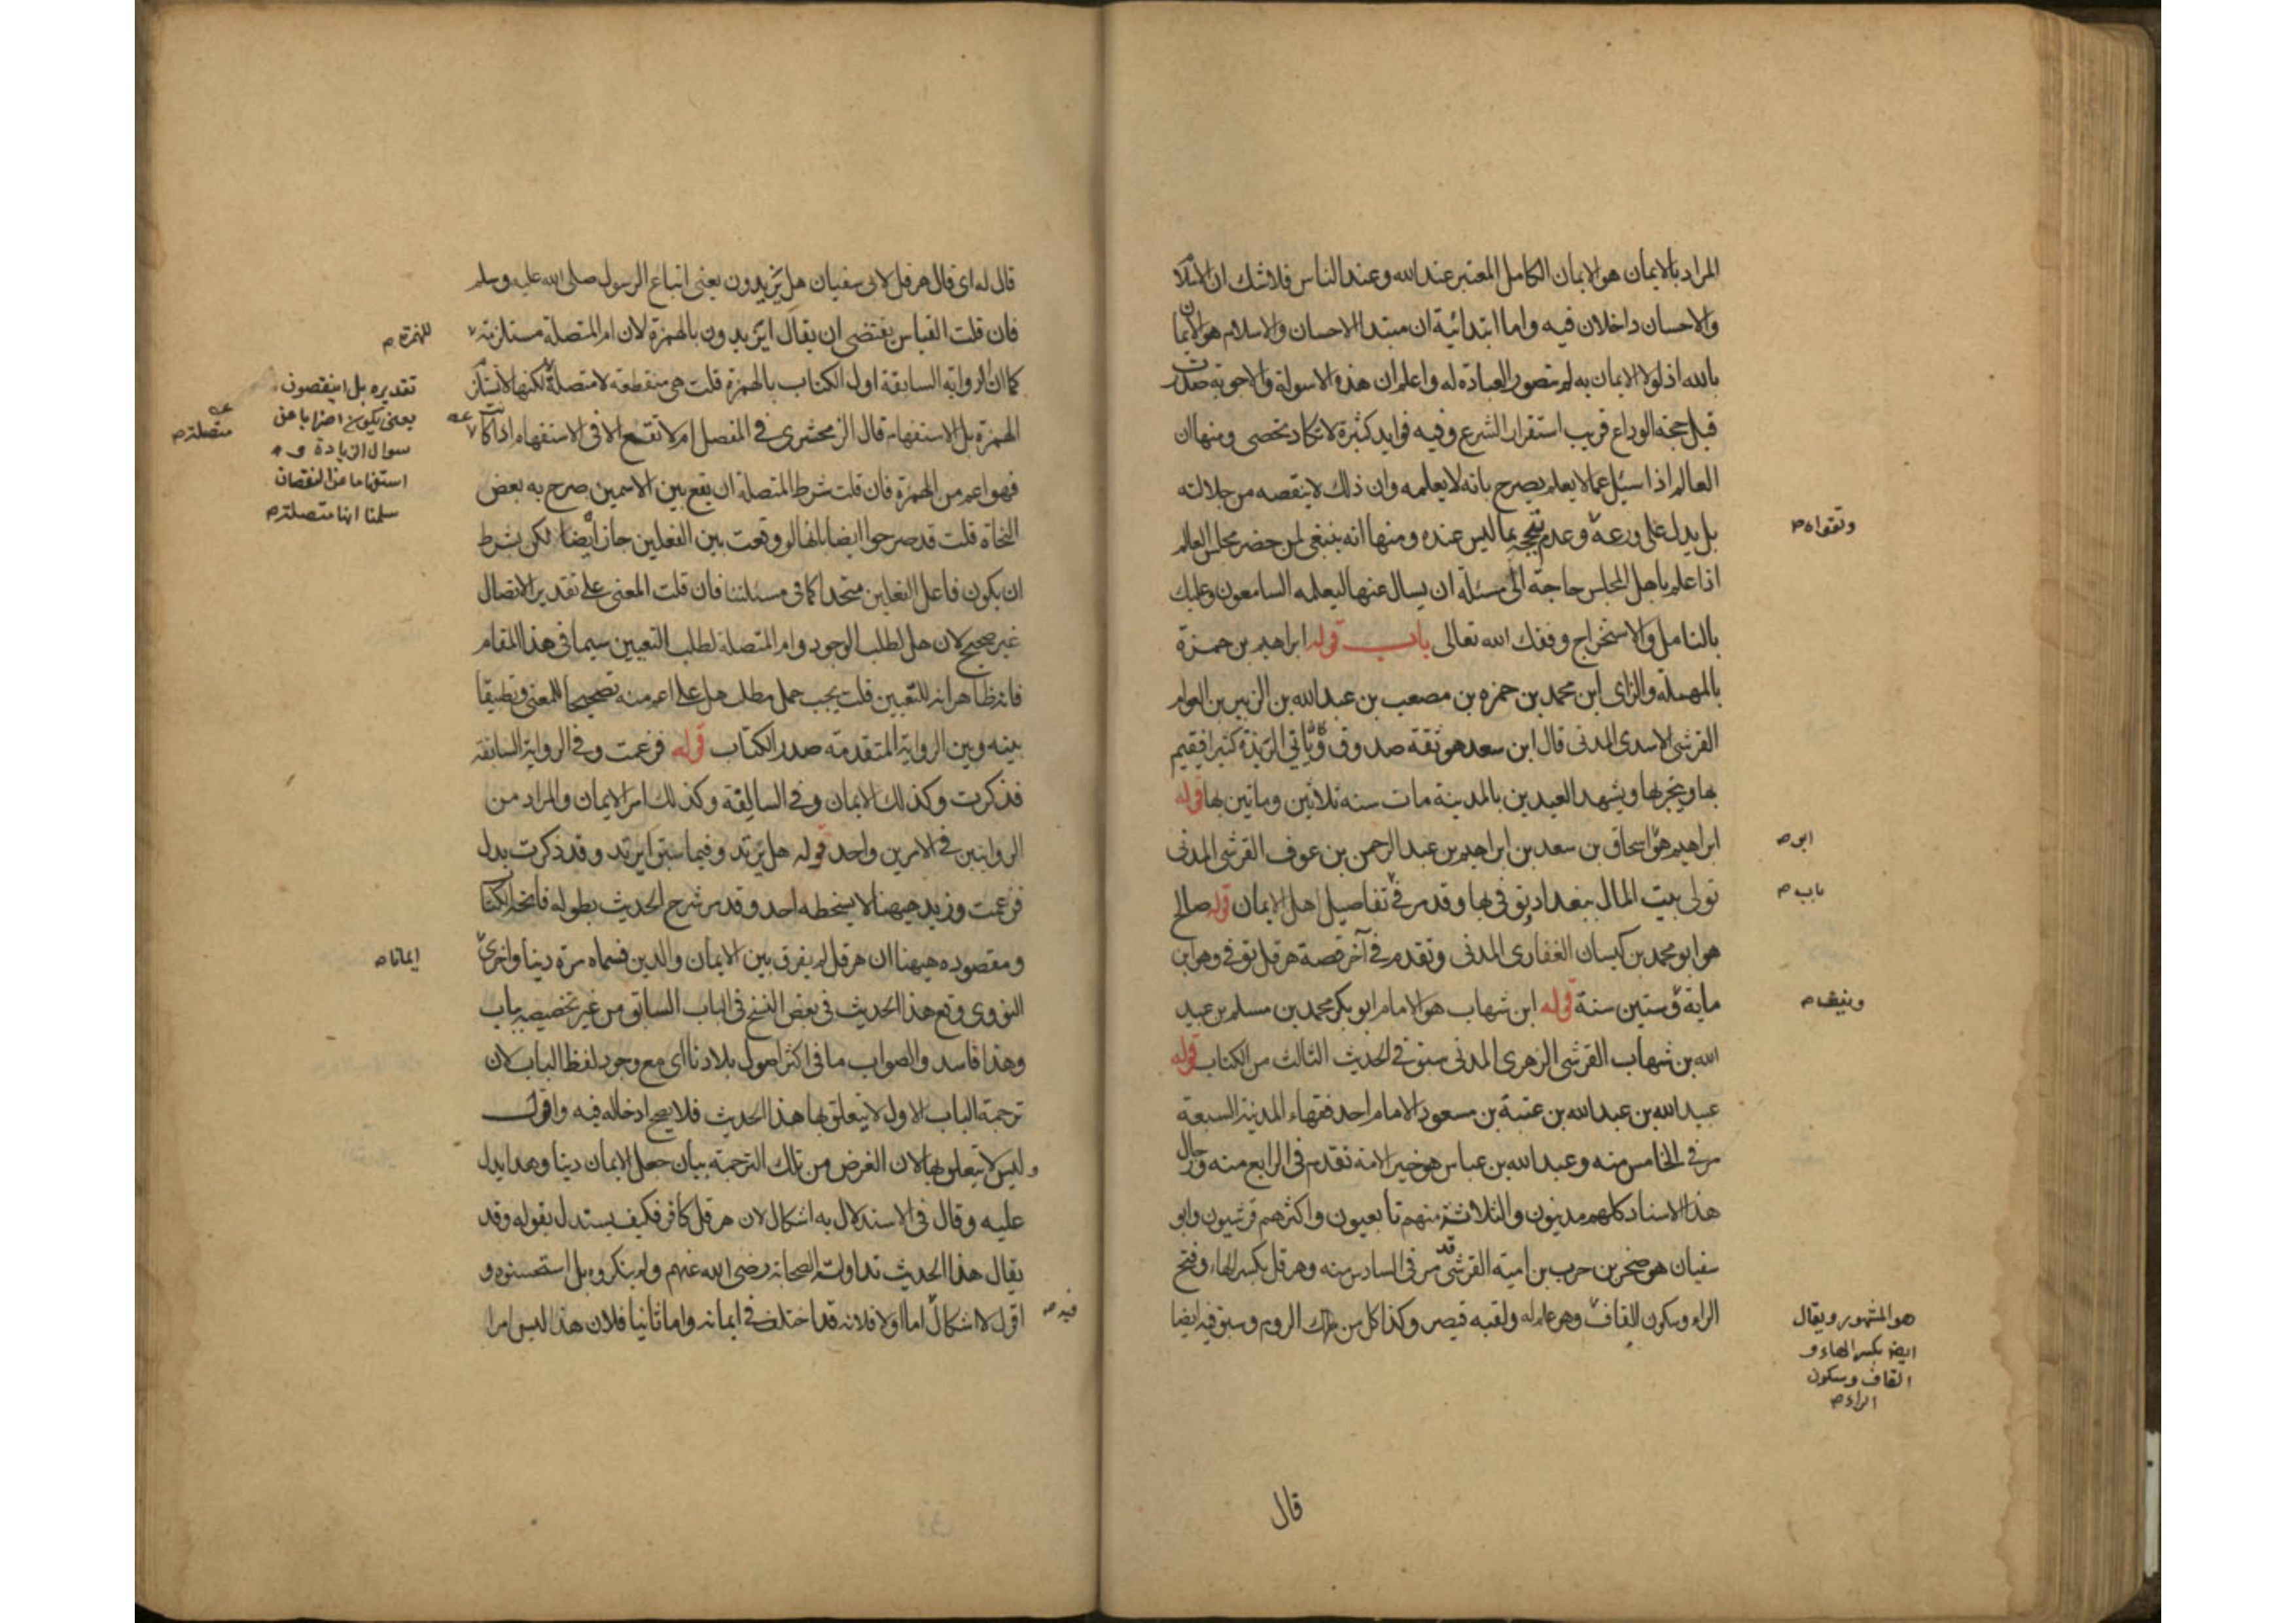 المراد بالايمان هو الايمان الكامل المعتبر عند الله وعند الناس فلا شك ان الاسلام
والاحسان داخلان فيه واما ابتدائية ان مبتدا الاحسان والاسلام هو الايمان
بالله اذ لولا الايمان به لم تتصور العبادة له واعلم ان هذه الاسولة والاجوبة صدرت
قبل حجة الوداع قريب استقرار الشرع وفيه فوايد كثيرة لا تكاد تحصى ومنها ان
العالم اذا سئل عما لا يعلم يصرح بانه لا يعلمه وان ذلك لا ينقصه من جلالته
بل يدل على ورعه وعدم تبجحه بما ليس عنده ومنها انه ينبغي لمن حضر مجلس العالم
وتقواه
اذا علم باهل المجلس حاجة الى مسئلة ان يسال عنها ليعلمه السامعون وعليك
بالتامل والاستخراج وفقك الله تعالى باب قوله ابراهيم بن حمزة
بالمهملة والزاى ابن محمد بن حمزه بن مصعب بن عبدالله بن الزبير بن العوام
القرشى الاسدى المدنى قال ابن سعد هو ثقة صدوق وياتي الربذة كثيرا فيقيم
بها ويتجر بها ويشهد العيدين بالمدينة مات سنه ثلاثين وماتين بها قوله
ابراهيم هو اسحاق بن سعد بن ابراهيم بن عبد الرحمن بن عوف القرشى المدنى
ابو
تولى بيت المال ببغداد توفى بها وقد مر في تفاصيل اهل الايمان قوله صالح
باب
هو ابو محمد بن كيسان الغفارى المدنى وتقدم في آخر قصة هرقل توفى وهو ابن
ماية وستين سنة قوله ابن شهاب هو الامام ابو بكر محمد بن مسلم بن عبيد
ونيف
الله بن شهاب القرشى الزهرى المدنى سبق فى الحديث الثالث من الكتاب قوله
عبيد الله بن عبد الله بن عتبة بن مسعود الامام احد فقهاء المدينة السبعة
مر في الخامس منه وعبد الله بن عباس هو خير الامة تقدم فى الرابع منه ورجال
هذا الاسناد كلهم مدنيون والثلاثة منهم تابعيون واكثرهم قرشيون وابو
سفيان هو صخر بن حرب بن امية القرشى قد مر فى السادس منه وهرقل بكسر الهاء وفتح
الراء وسكون القاف وهو علم له ولقبه قيصر وكذا كل من ملك الروم وسبق فيه ايضا
هو المشهور ويقال
ايضا بكسر الهاء و
القاف وسكون
الراء
قال
قال له اى قال هرقل لابى سفيان هل يزيدون يعنى اتباع الرسول صلى الله عليه وسلم
فان قلت القياس يقتضى ان يقال ايزيدون بالهمزة لان ام المتصلة مستلزمة
للهمزة
كما ان الرواية السابقة اول الكتاب بالهمزة قلت هى منقطعة لا متصلة لكنها لا تستلزم
تقديره بل اينقصون
يعنى يكون اضرابا عن
سوال الزيادة و
استفهاما عن النقصان
سلمنا انها متصلة
متصلة
الهمزة بل الاستفهام قال الزمخشرى في المفصل ام لا تقع الا فى الاستفهام اذا كانت
فهو اعم من الهمزة فان قلت شرط المتصلة ان يقع بين الاسمين صرح به بعض
النحاة قلت قد صرحوا ايضا بانها لو وقعت بين الفعلين جاز ايضا لكن بشرط
ان يكون فاعل الفعلين متحدا كما فى مسئلتنا فان قلت المعنى على تقدير الاتصال
غير صحيح لان هل لطلب الوجود وام المتصلة لطلب التعيين سيما فى هذا المقام
فانه ظاهر انه للتعيين قلت يجب حمل مطلب هل على اعم منه تصحيحا للمعنى وتطبيقا
بينه وبين الرواية المتقدمة صدر الكتاب قوله فزعمت وفى الرواية السابقة
فذكرت وكذلك الايمان وفي السابقة وكذلك امر الايمان والمراد من
الروايتين فى الامرين واحد قوله هل يرتد وفيما سبق ايرتد وقد ذكرت بدل
فزعمت وزيد هيهنا لا يسخطه احد وقد مر شرح الحديث بطوله فاتحة الكتاب
ومقصوده هيهنا ان هرقل لم يفرق بين الايمان والدين فسماه مرة دينا واخرى
ايمانا
النووى وقع هذا الحديث فى بعض النسخ فى الباب السابق من غير تخصيصه بباب
وهذا فاسد والصواب ما فى اكثر اصول بلادنا اى مع وجود لفظ الباب لان
ترجمة الباب الاول لا يتعلق بها هذا الحديث فلا يصح ادخاله فيه واقول
وليس لا يتعلق بها لان الغرض من تلك الترجمة بيان جعل الايمان دينا وهذا يدل
عليه وقال فى الاستدلال به اشكال لان هرقل كافر فكيف يستدل بقوله وقد
يقال هذا الحديث تداولته الصحابة رضى الله عنهم ولم ينكروه بل استحسنوه و
اقول لا اشكال اما اولا فلانه قد اختلف فى ايمانه واما ثانيا فلان هذا ليس امرا
فيه